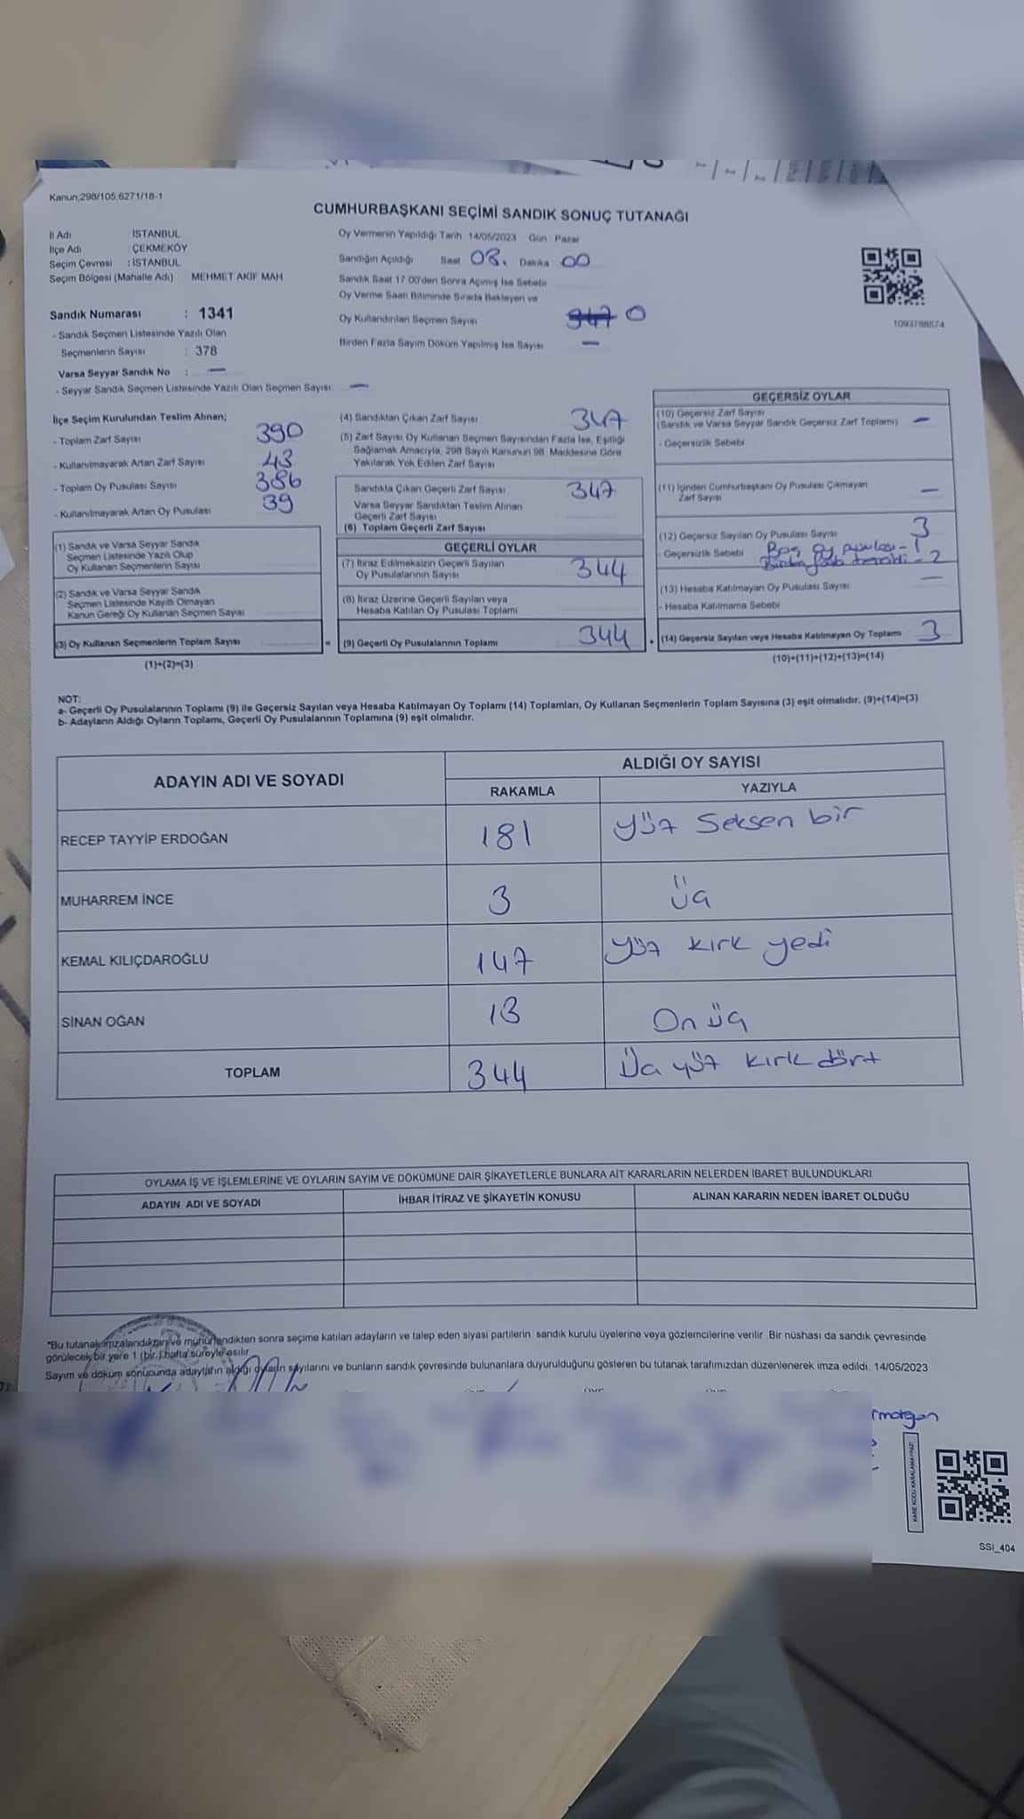 Kanun;298/105,6271/18-1
CUMHURBAŞKANI SEÇİMİ SANDIK SONUÇ TUTANAĞI
İl Adı : İSTANBUL
İlçe Adı : ÇEKMEKÖY
Seçim Çevresi : İSTANBUL
Seçim Bölgesi (Mahalle Adı) MEHMET AKİF MAH
Sandık Numarası : 1341
- Sandık Seçmen Listesinde Yazılı Olan
Seçmenlerin Sayısı : 378
Varsa Seyyar Sandık No : —
- Seyyar Sandık Seçmen Listesinde Yazılı Olan Seçmen Sayısı: —
Oy Vermenin Yapıldığı Tarih 14/05/2023 Gün Pazar
Sandığın Açıldığı Saat 08. Dakika 00
Sandık Saat 17 00'den Sonra Açımış İse Sebebi
Oy Verme Saati Bitiminde Sırada Bekleyen ve
Oy Kullandırılan Seçmen Sayısı 347 0
Birden Fazla Sayım Döküm Yapılmış İse Sayısı —
1093788574
İlçe Seçim Kurulundan Teslim Alınan;
- Toplam Zarf Sayısı 390
- Kullanılmayarak Artan Zarf Sayısı 43
- Toplam Oy Pusulası Sayısı 386
- Kullanılmayarak Artan Oy Pusulası 39
(1) Sandık ve Varsa Seyyar Sandık
Seçmen Listesinde Yazılı Olup
Oy Kullanan Seçmenlerin Sayısı
(2) Sandık ve Varsa Seyyar Sandık
Seçmen Listesinde Kayıtlı Olmayan
Kanun Gereği Oy Kullanan Seçmen Sayısı
(3) Oy Kullanan Seçmenlerin Toplam Sayısı =
(1)+(2)=(3)
(4) Sandıktan Çıkan Zarf Sayısı 347
(5) Zarf Sayısı Oy Kullanan Seçmen Sayısından Fazla İse, Eşitliği
Sağlamak Amacıyla, 298 Sayılı Kanunun 98. Maddesine Göre
Yakılarak Yok Edilen Zarf Sayısı
Sandıkta Çıkan Geçerli Zarf Sayısı 347
Varsa Seyyar Sandıktan Teslim Alınan
Geçerli Zarf Sayısı
(6) Toplam Geçerli Zarf Sayısı
GEÇERLİ OYLAR
(7) İtiraz Edilmeksizin Geçerli Sayılan
Oy Pusulalarının Sayısı 344
(8) İtiraz Üzerine Geçerli Sayılan veya
Hesaba Katılan Oy Pusulası Toplamı
(9) Geçerli Oy Pusulalarının Toplamı 344 +
GEÇERSİZ OYLAR
(10) Geçersiz Zarf Sayısı
(Sandık ve Varsa Seyyar Sandık Geçersiz Zarf Toplamı) —
- Geçersizlik Sebebi
(11) İçinden Cumhurbaşkanı Oy Pusulası Çıkmayan
Zarf Sayısı —
(12) Geçersiz Sayılan Oy Pusulası Sayısı 3
- Geçersizlik Sebebi Boş oy pusulası - 1
- 2
(13) Hesaba Katılmayan Oy Pusulası Sayısı —
- Hesaba Katılmama Sebebi
(14) Geçersiz Sayılan veya Hesaba Katılmayan Oy Toplamı 3
(10)+(11)+(12)+(13)=(14)
NOT:
a- Geçerli Oy Pusulalarının Toplamı (9) ile Geçersiz Sayılan veya Hesaba Katılmayan Oy Toplamı (14) Toplamları, Oy Kullanan Seçmenlerin Toplam Sayısına (3) eşit olmalıdır. (9)+(14)=(3)
b- Adayların Aldığı Oyların Toplamı, Geçerli Oy Pusulalarının Toplamına (9) eşit olmalıdır.
ADAYIN ADI VE SOYADI
ALDIĞI OY SAYISI
RAKAMLA YAZIYLA
RECEP TAYYİP ERDOĞAN 181 yüz Seksen bir
MUHARREM İNCE 3 üç
KEMAL KILIÇDAROĞLU 147 yüz kırk yedi
SİNAN OĞAN 13 On üç
TOPLAM 344 Üç yüz kırk dört
OYLAMA İŞ VE İŞLEMLERİNE VE OYLARIN SAYIM VE DÖKÜMÜNE DAİR ŞİKAYETLERLE BUNLARA AİT KARARLARIN NELERDEN İBARET BULUNDUKLARI
ADAYIN ADI VE SOYADI İHBAR İTİRAZ VE ŞİKAYETİN KONUSU ALINAN KARARIN NEDEN İBARET OLDUĞU
*Bu tutanak imzalandıktan ve mühürlendikten sonra seçime katılan adayların ve talep eden siyasi partilerin sandık kurulu üyelerine veya gözlemcilerine verilir. Bir nüshası da sandık çevresinde
görülecek bir yere 1 (bir ) hafta süreyle asılır.
Sayım ve döküm sonucunda adayların aldığı oyların sayılarını ve bunların sandık çevresinde bulunanlara duyurulduğunu gösteren bu tutanak tarafımızdan düzenlenerek imza edildi. 14/05/2023
KARE KODU KARALAMAYINIZ!
SSI_404